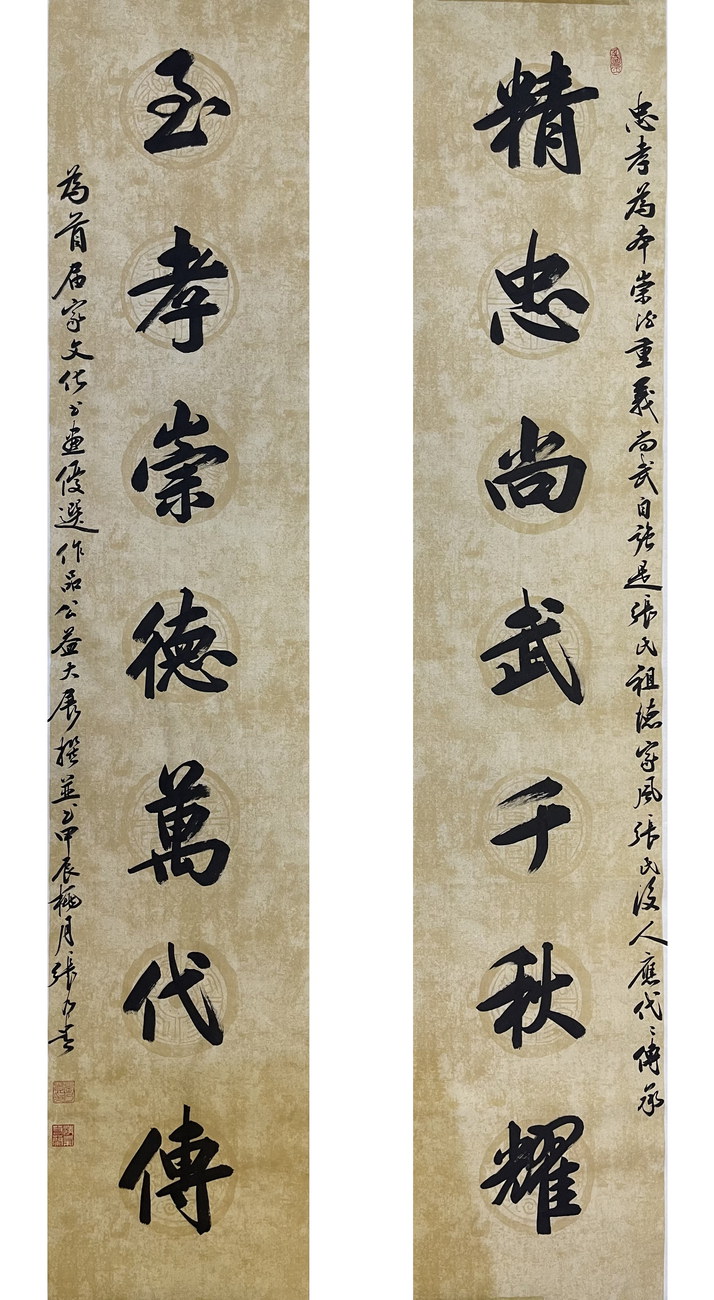 忠孝為本崇德重義尚武自強是張氏祖德家風張氏後人應代々傳承
精忠尚武千秋耀
至孝崇德萬代傳
為首届家文化书畫優選作品公益大展撰並书甲辰梅月張乃